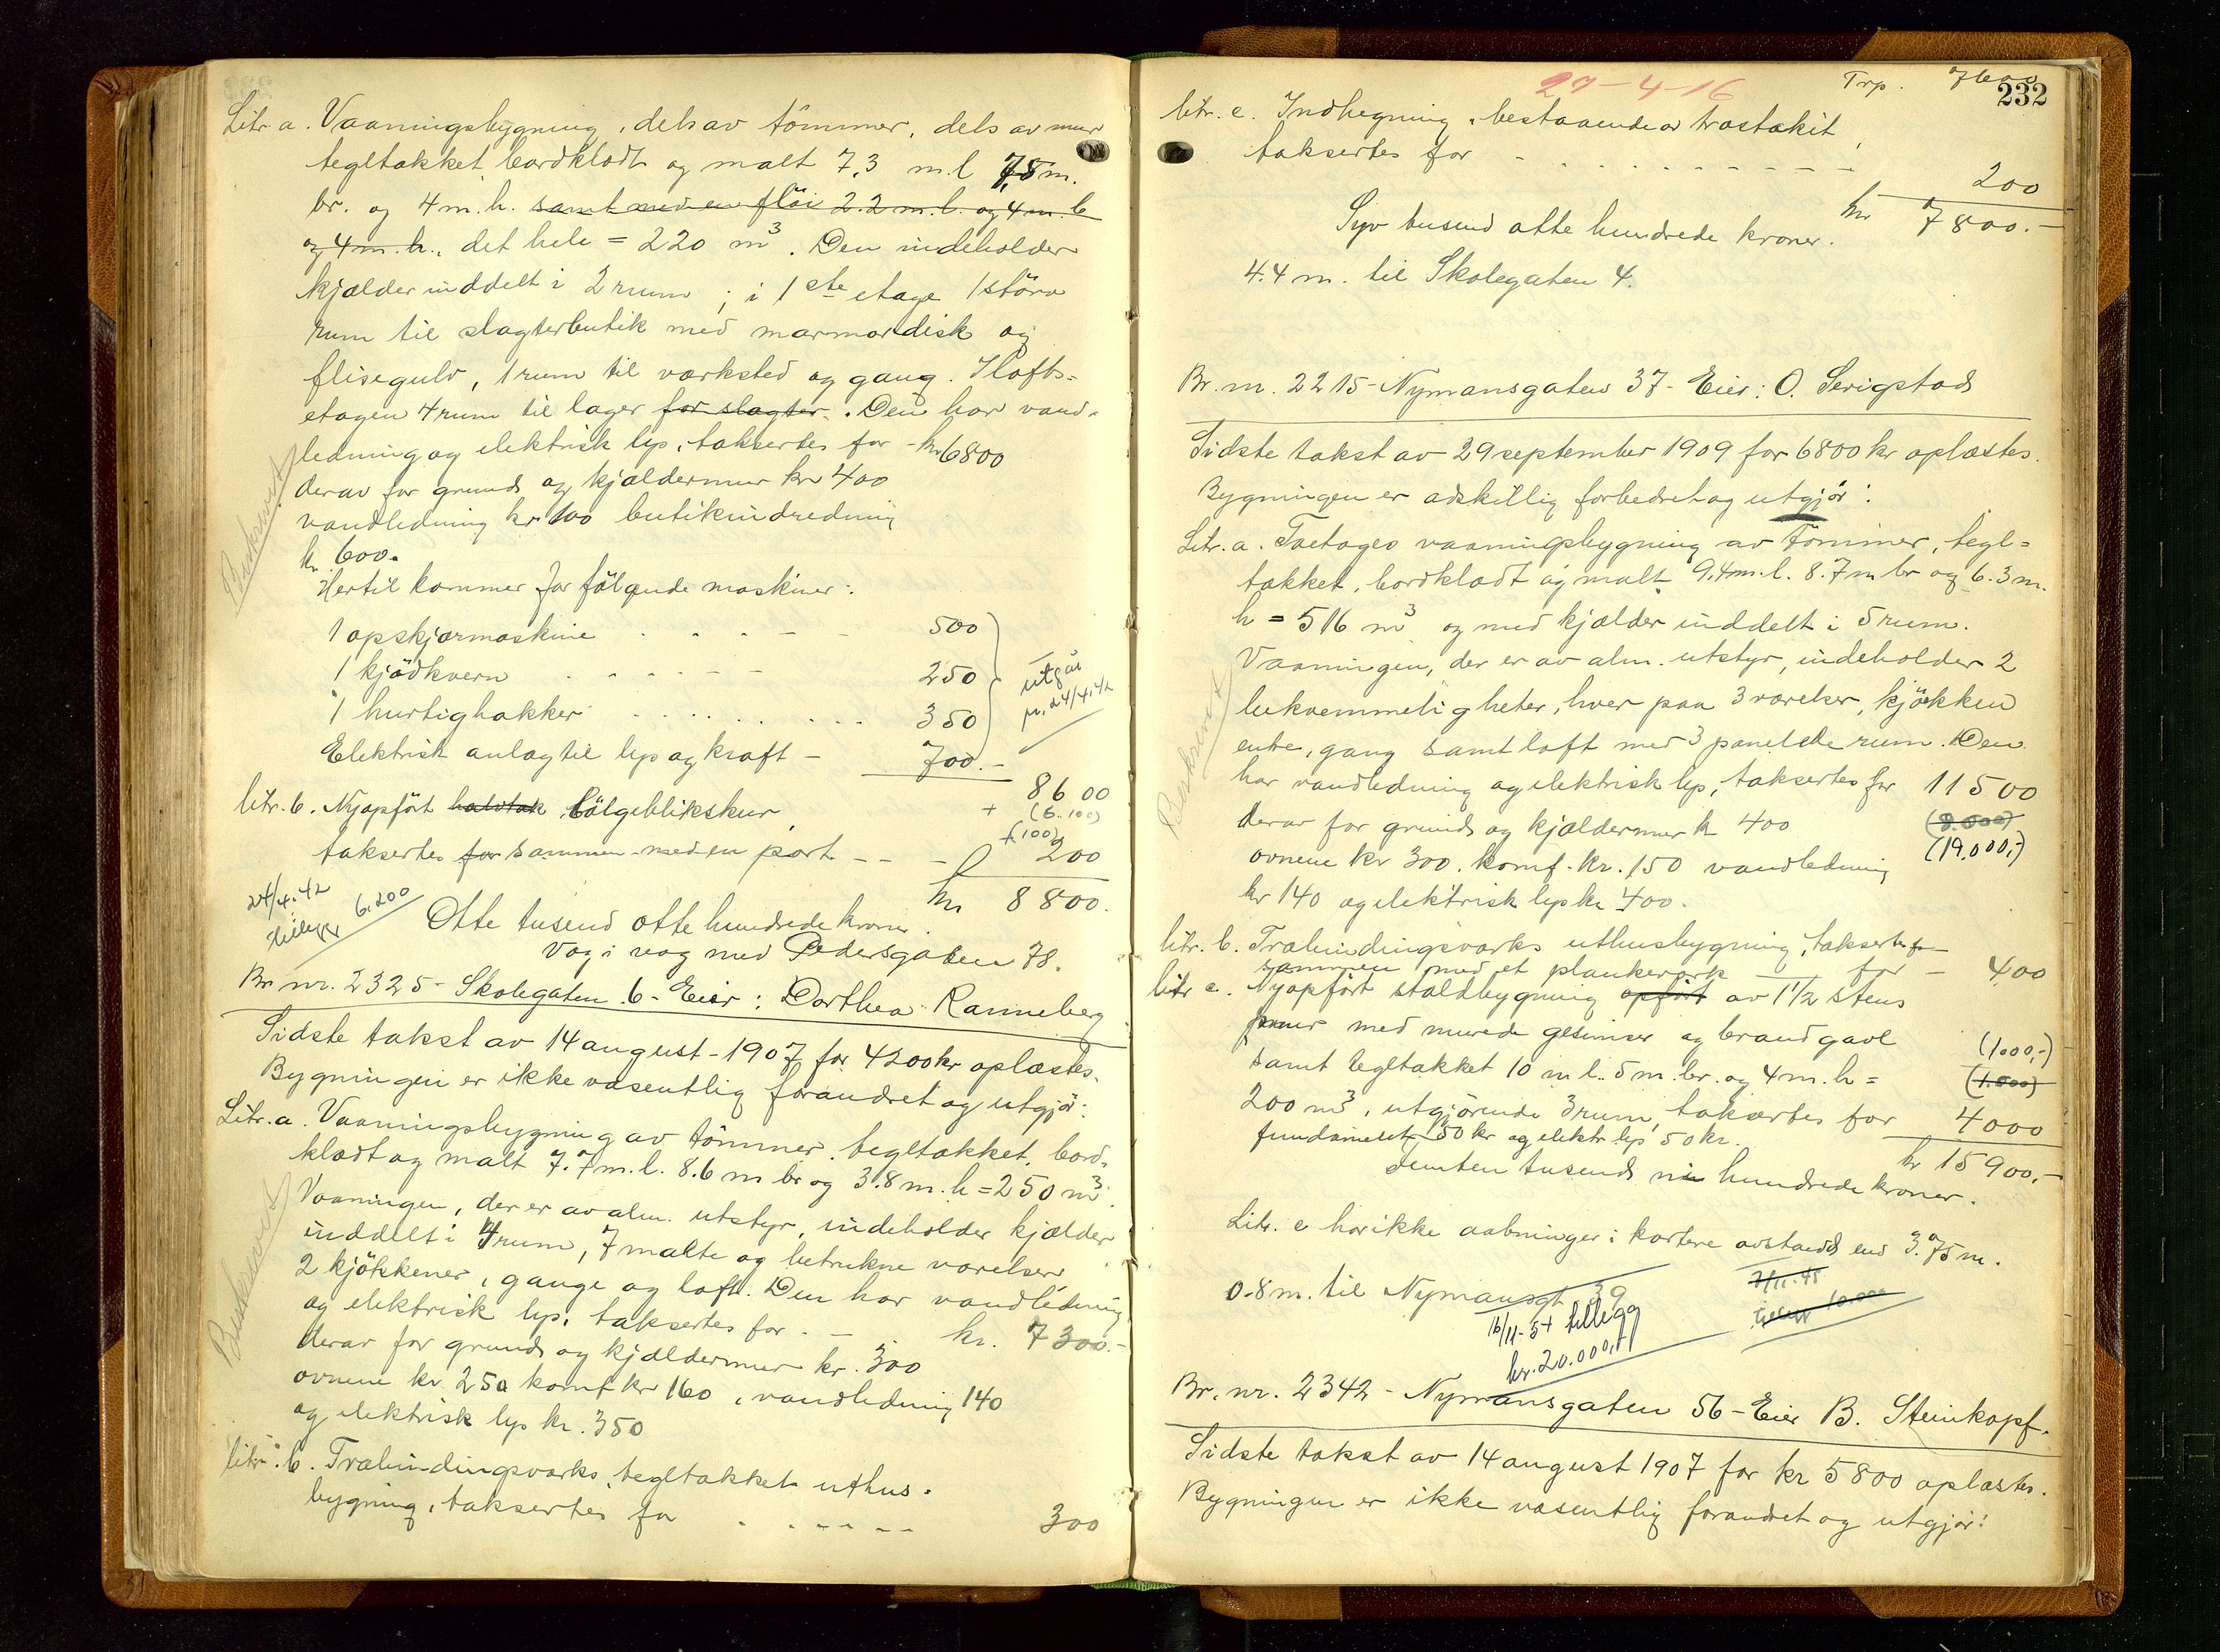 Litr. a. Vaaningsbygning, dels av tömmer, dels av mur
tegltækket, bordklædt og malt 7,3 m.l. 7,5 m.
br. og 4 m.h. samt med en flöi 2.2 m.l. og 4 m. b
og 4 m. h., det hele = 220 m³. Den indeholder
kjælder inddelt i 2 rum; i 1ste etage 1 större
rum til slagterbutik med marmordisk og
flisegulv, 1 rum til værksted og gang. I lofts=
etagen 4 rum til lager for slagter. Den har vand-
ledning og elektrisk lys, taksertes for - kr 6800
derav for grund og kjældermur kr 400
vandledning kr 100 butikindredning
kr. 600.
Beskrevet
Hertil kommer for følgende maskiner:
1 opskjærmaskine 500
1 kjödkvern 250
1 hurtighakker 350
Elektrisk anlæg til lys og kraft - 700.-
utgår
pr. 24/4.42
8600
litr. b. Nyopført halvtak bölgeblikskur,
+ (6.100)
+(100)
taksertes for sammen med en port - - - 200
kr 8800.
24/4.42
tillegg 6.200
Otte tusend otte hundrede kroner.
Væg i væg med Pedersgaten 78.
Br. nr. 2325 - Skolegaten 6 - Eier: Dorthea Ranneberg
Sidste takst av 14 august - 1907 for 4200 kr oplæstes.
Bygningen er ikke væsentlig forandret og utgjør:
Litr. a. Vaaningsbygning av tömmer, tegltækket, bord-
klædt og malt 7.7 m.l. 8.6 m br og 3.8 m.h = 250 m³.
Vaaningen, der er av alm. utstyr, indeholder kjælder
inddelt i 4 rum, 7 malte og betrukne værelser,
2 kjökkener, gange og loft. Den har vandledning
og elektrisk lys, taksertes for - kr. 7300.-
derav for grund og kjældermur kr. 300
ovnene kr 250 komf kr 160, vandledning 140
og elektrisk lys kr. 350
Beskrevet
litr. b. Træbindingsværks, tegltækket uthus-
bygning, taksertes for 300
29-4-16
Trp. 7600
232
litr. c. Indhegning, bestaaende av træstakit,
taksertes for 200
kr 7800.-
Syv tusend otte hundrede kroner.
4.4 m. til Skolegaten 4.
Br. nr. 2215 - Nymansgaten 37 - Eier: O. Serigstad
Sidste takst av 29 september 1909 for 6800 kr oplæstes.
Bygningen er adskillig forbedret og utgjör:
Litr. a. Toetages vaaningsbygning av tömmer, tegl=
tækket, bordklædt og malt 9.4 m.l. 8.7 m br og 6.3 m.
h = 516 m³ og med kjælder inddelt i 5 rum.
Vaaningen, der er av alm. utstyr, indeholder 2
bekvemmeligheter, hver paa 3 værelser, kjökken
entre, gang samt loft med 3 panelte rum. Den
har vandledning og elektrisk lys, taksertes for 11500
derav for grund og kjældermur kr 400 (8.000)
ovnene kr 300. komf. kr. 150 vandledning (19.000,-)
kr 140 og elektrisk lys kr 400.
Beskrevet
litr. b. Træbindingsværks uthusbygning, taksertes for
sammen med et plankeverk for - 400
litr c. Nyopført staldbygning opført av 1 1/2 stens
mur med murede gesimser og brandgavl
(1000,-)
samt tegltækket 10 m l. 5 m. br. og 4 m. h = (1.000)
200 m³, utgjørende 3 rum, taksertes for 4000
fundament 50 kr og elektr lys 50 kr.
kr 15900.-
Femten tusend ni hundrede kroner.
Litr. c har ikke aabninger i kortere avstand end 3.75 m.
0.8 m. til Nymansgt. 39
7/11.45
10.000
16/11-54 tillegg
kr. 20.000,-
Br. nr. 2342 - Nymansgaten 56 - Eier B. Steinkopf.
Sidste takst av 14 august 1907 for kr 5800 oplæstes.
Bygningen er ikke væsentlig forandret og utgjør: